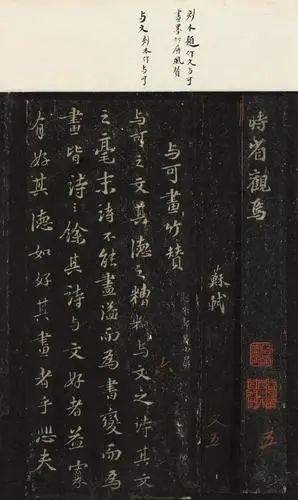 刻本題作文与可
畫墨竹屏風贊
与文刻本作与可
時省觀焉
五
蘇軾
文五
与可畫竹贊
六
与可之文其德之糟粕与文之詩其文
之毫末詩不能盡溢而為書變而為
畫皆詩之餘其詩与文好者益寡
有好其德如好其畫者乎悲夫